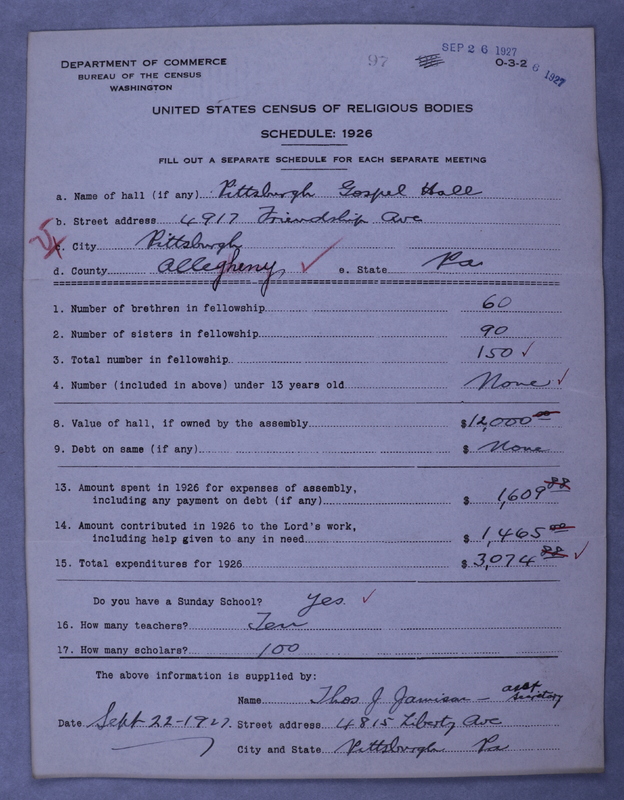 SEP 26 1927
97
DEPARTMENT OF COMMERCE
BUREAU OF THE CENSUS
WASHINGTON
O-3-2
6 1927
UNITED STATES CENSUS OF RELIGIOUS BODIES
SCHEDULE: 1926
FILL OUT A SEPARATE SCHEDULE FOR EACH SEPARATE MEETING
a. Name of hall (if any) Pittsburgh Gospel Hall
b. Street address 4917 Friendship Ave
c. City Pittsburgh
d. County Allegheny e. State Pa
1. Number of brethren in fellowship 60
2. Number of sisters in fellowship 90
3. Total number in fellowship 150
4. Number (included in above) under 13 years old None
8. Value of hall, if owned by the assembly $12,000
9. Debt on same (if any) $ None
13. Amount spent in 1926 for expenses of assembly,
including any payment on debt (if any) $ 1,609
14. Amount contributed in 1926 to the Lord's work,
including help given to any in need $ 1,465
15. Total expenditures for 1926 $ 3,074
Do you have a Sunday School? Yes.
16. How many teachers? Ten
17. How many scholars? 100
The above information is supplied by:
Name Thos J Jamison - asst secretary
Date Sept-22-1927. Street address 4815 Liberty Ave
City and State Pittsburgh Pa